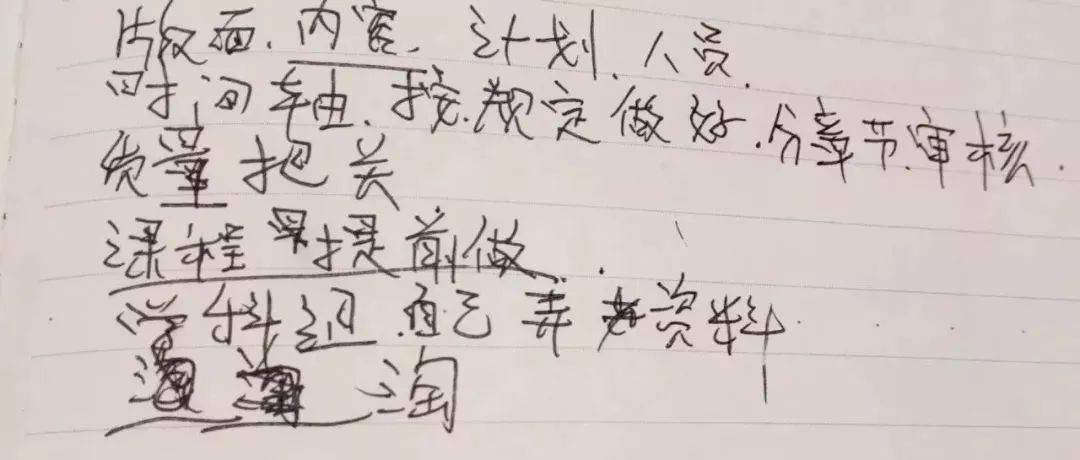 版面、内容、计划、人员、
时间轴、按规定做好、分章节、审核.
质量把关
课程 提前做.
学科组 自己弄 资料
淘